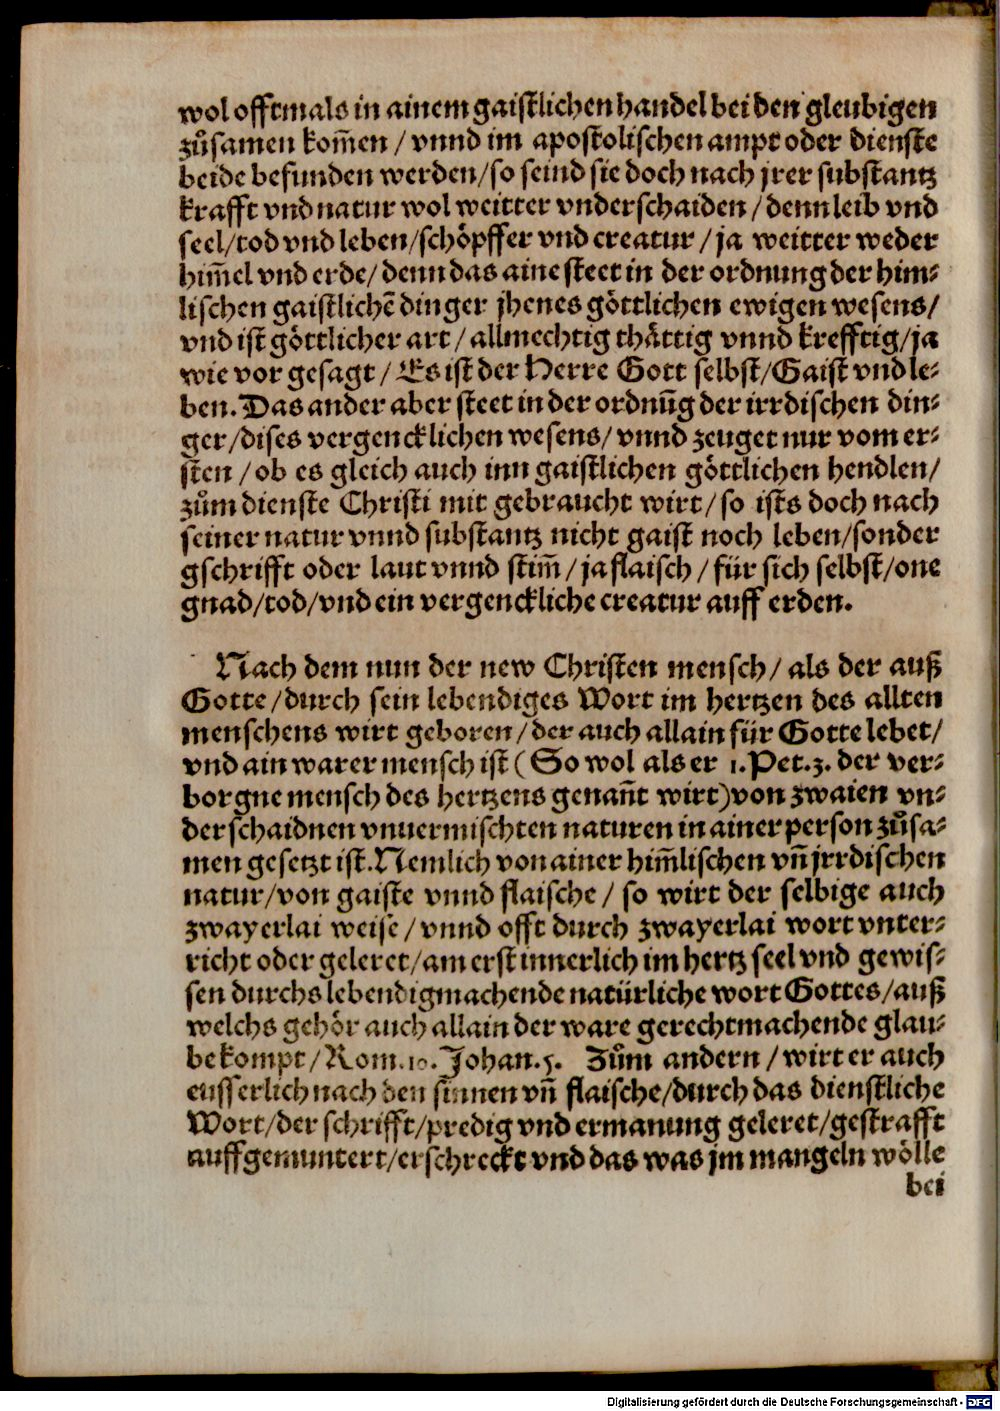 wol offtmals in ainem gaistlichen handel bei den gleubigen
zůsamen kom̄en / vnnd im apostolischen ampt oder dienste
beide befunden werden/so seind sie doch nach jrer substantz
krafft vnd natur wol weitter vnderschaiden / denn leib vnd
seel/tod vnd leben/schöpffer vnd creatur / ja weitter weder
him̄el vnd erde/ denn das aine steet in der ordnung der him-
lischen gaistlichē dinger jhenes göttlichen ewigen wesens/
vnd ist göttlicher art / allmechtig thättig vnnd krefftig/ja
wie vor gesagt / Es ist der Herre Gott selbst/Gaist vnd le-
ben. Das ander aber steet in der ordnūg der irrdischen din-
ger/dises vergencklichen wesens/ vnnd zeuget nur vom er-
sten / ob es gleich auch inn gaistlichen göttlichen hendlen/
zům dienste Christi mit gebraucht wirt/ so ists doch nach
seiner natur vnnd substantz nicht gaist noch leben/sonder
gschrifft oder laut vnnd stim̄ / ja flaisch / für sich selbst/one
gnad/tod/vnd ein vergenckliche creatur auff erden.
Nach dem nun der new Christen mensch / als der auß
Gotte / durch sein lebendiges Wort im hertzen des allten
menschens wirt geboren / der auch allain für Gotte lebet/
vnd ain warer mensch ist ( So wol als er 1. Pet. 3. der ver-
borgne mensch des hertzens genan̄t wirt) von zwaien vn-
derschaidnen vnuermischten naturen in ainer person zůsa-
men gesetzt ist. Nemlich von ainer him̄lischen vn̄ jrrdischen
natur/von gaiste vnnd flaische / so wirt der selbige auch
zwayerlai weise / vnnd offt durch zwayerlai wort vnter-
richt oder geleret/am erst innerlich im hertz seel vnd gewis-
sen durchs lebendigmachende natürliche wort Gottes/auß
welchs gehör auch allain der ware gerechtmachende glau-
be kompt / Rom. 10. Johan. 5. Zům andern / wirt er auch
eusserlich nach den sinnen vn̄ flaische/durch das dienstliche
Wort/der schrifft/predig vnd ermanung geleret/gestrafft
auffgemuntert/erschreckt vnd das was jm mangeln wölle
bei
Digitalisierung gefördert durch die Deutsche Forschungsgemeinschaft - DFG